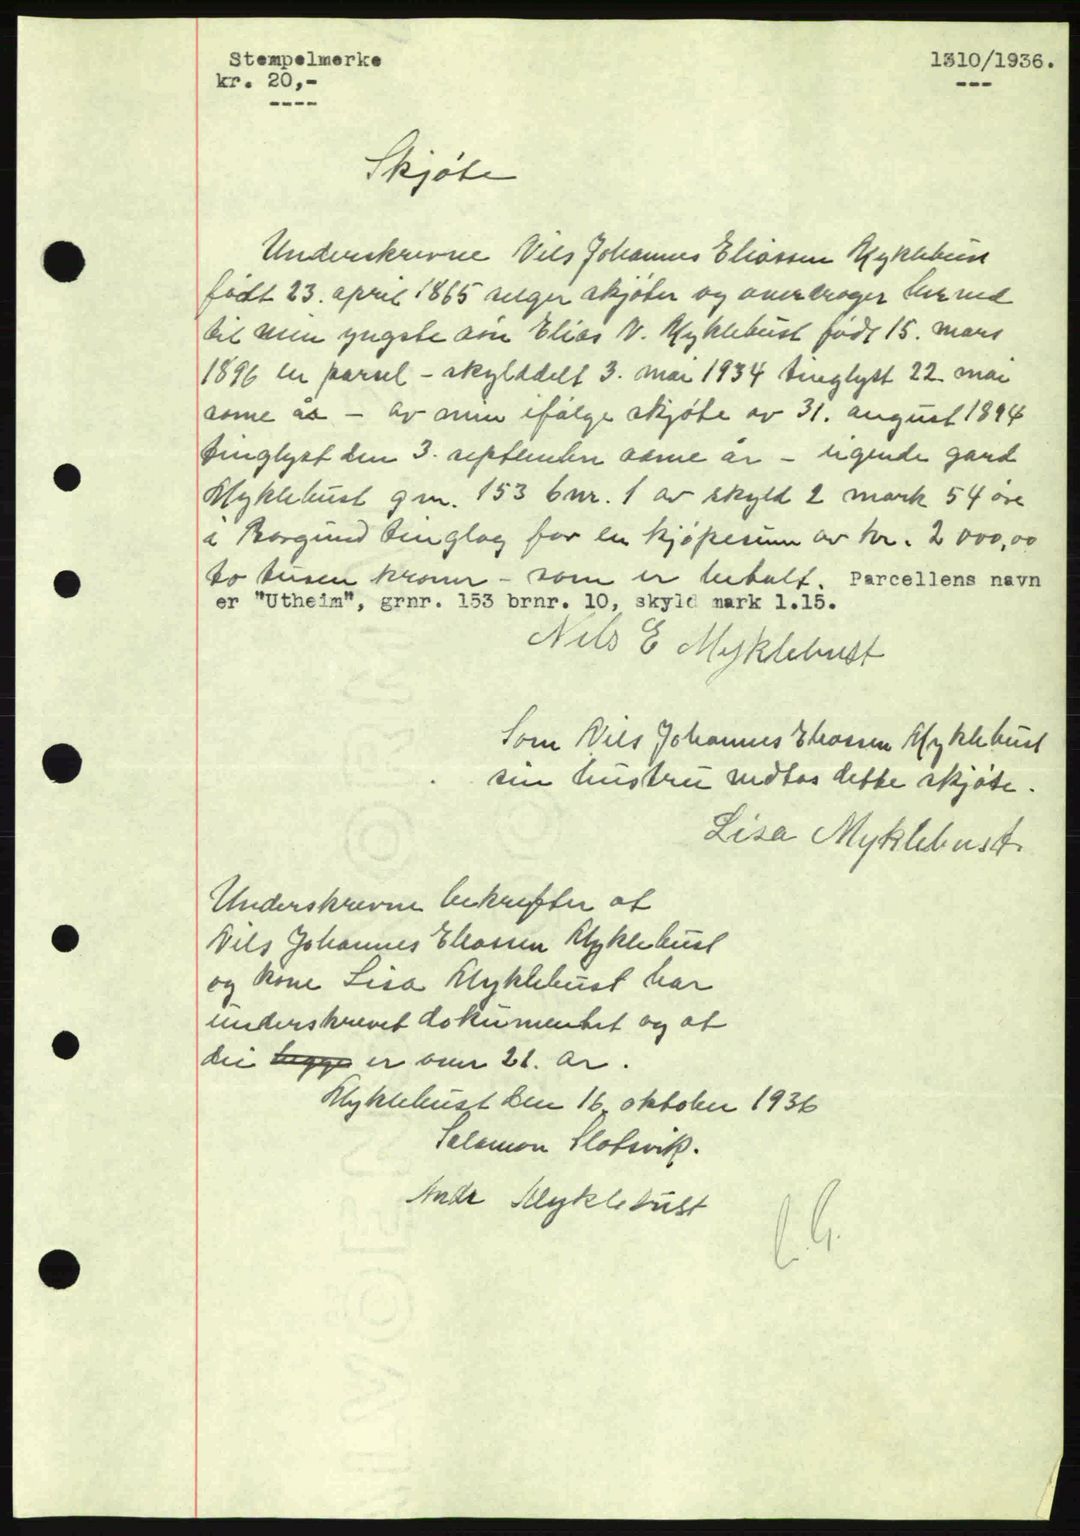 Stempelmerke
kr. 20,-
----
1310/1936.
---
Skjøte
Underskrevne Nils Johannes Eliassen Myklebust
født 23. april 1865 selger skjøter og overdrager herved
til min yngste søn Elias N. Myklebust født 15. mars
1896 en parsel - skylddelt 3. mai 1934 tinglyst 22 mai
same år - av min ifølge skjøte av 31. august 1894
tinglyst den 3. september same år - eigende gard
Myklebust gnr. 153 bnr. 1 av skyld 2 mark 54 øre
i Borgund tinglag for en kjøpesum av kr. 2 000,00
to tusen kroner - som er betalt. Parcellens navn
er "Utheim", grnr. 153 brnr. 10, skyld mark 1.15.
Nils E Myklebust
Som Nils Johannes Eliassen Myklebust
sin hustru vedtas dette skjøte.
Lisa Myklebust.
Underskrevne bekrefter at
Nils Johannes Eliassen Myklebust
og kone Lisa Myklebust har
underskrevet dokumentet og at
dei begge er over 21. år.
Myklebust den 16. oktober 1936
Salamon Slotsvik.
Myklebust